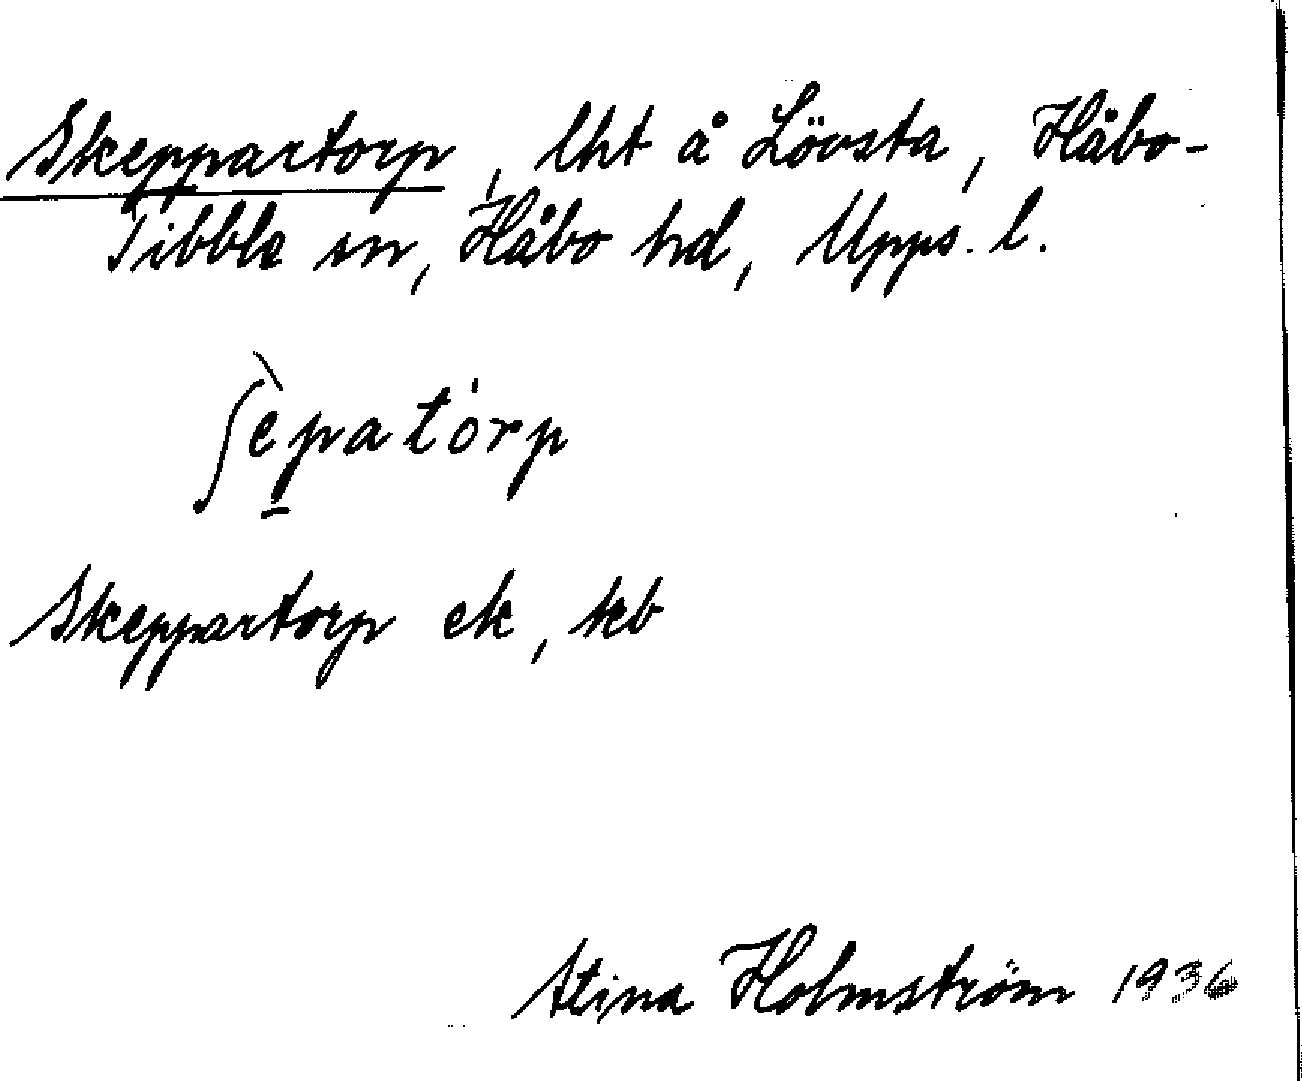 Skeppartorp, lht å Lövsta, Håbo-
Tibble sn, Håbo hd, Upps. l.
ʃèp̱atórp
Skeppartorp ek, kb
Stina Holmström 1936